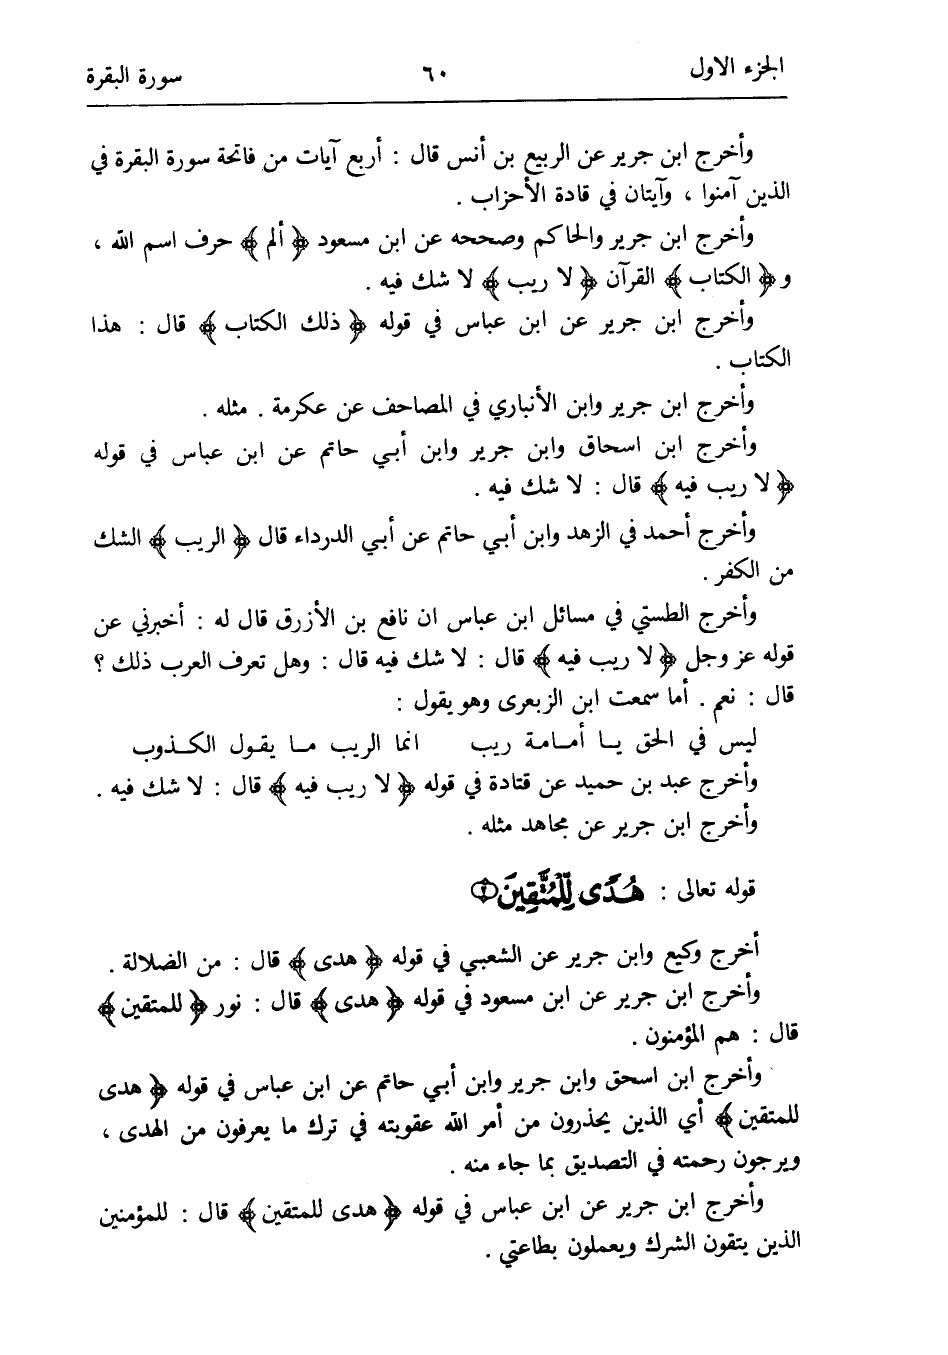 الجزء الاول ٦٠ سورة البقرة
وأخرج ابن جرير عن الربيع بن أنس قال : أربع آيات من فاتحة سورة البقرة في
الذين آمنوا ، وآيتان في قادة الأحزاب .
وأخرج ابن جرير والحاكم وصححه عن ابن مسعود ﴿ ألم ﴾ حرف اسم الله ،
و ﴿ الكتاب ﴾ القرآن ﴿ لا ريب ﴾ لا شك فيه .
وأخرج ابن جرير عن ابن عباس في قوله ﴿ ذلك الكتاب ﴾ قال : هذا
الكتاب .
وأخرج ابن جرير وابن الأنباري في المصاحف عن عكرمة . مثله .
وأخرج ابن اسحاق وابن جرير وابن أبي حاتم عن ابن عباس في قوله
﴿ لا ريب فيه ﴾ قال : لا شك فيه .
وأخرج أحمد في الزهد وابن أبي حاتم عن أبي الدرداء قال ﴿ الريب ﴾ الشك
من الكفر .
وأخرج الطستي في مسائل ابن عباس ان نافع بن الأزرق قال له : أخبرني عن
قوله عز وجل ﴿ لا ريب فيه ﴾ قال : لا شك فيه قال : وهل تعرف العرب ذلك ؟
قال : نعم . أما سمعت ابن الزبعرى وهو يقول :
ليس في الحق يـا أمـامـة ريب انما الريب مـا يقـول الكـذوب
وأخرج عبد بن حميد عن قتادة في قوله ﴿ لا ريب فيه ﴾ قال : لا شك فيه .
وأخرج ابن جرير عن مجاهد مثله .
قوله تعالى : هُدًى لِّلْمُتَّقِينَ ۝٢
أخرج وكيع وابن جرير عن الشعبي في قوله ﴿ هدى ﴾ قال : من الضلالة .
وأخرج ابن جرير عن ابن مسعود في قوله ﴿ هدى ﴾ قال : نور ﴿ للمتقين ﴾
قال : هم المؤمنون .
وأخرج ابن اسحق وابن جرير وابن أبي حاتم عن ابن عباس في قوله ﴿ هدى
للمتقين ﴾ أي الذين يحذرون من أمر الله عقوبته في ترك ما يعرفون من الهدى ،
ويرجون رحمته في التصديق بما جاء منه .
وأخرج ابن جرير عن ابن عباس في قوله ﴿ هدى للمتقين ﴾ قال : للمؤمنين
الذين يتقون الشرك ويعملون بطاعتي .